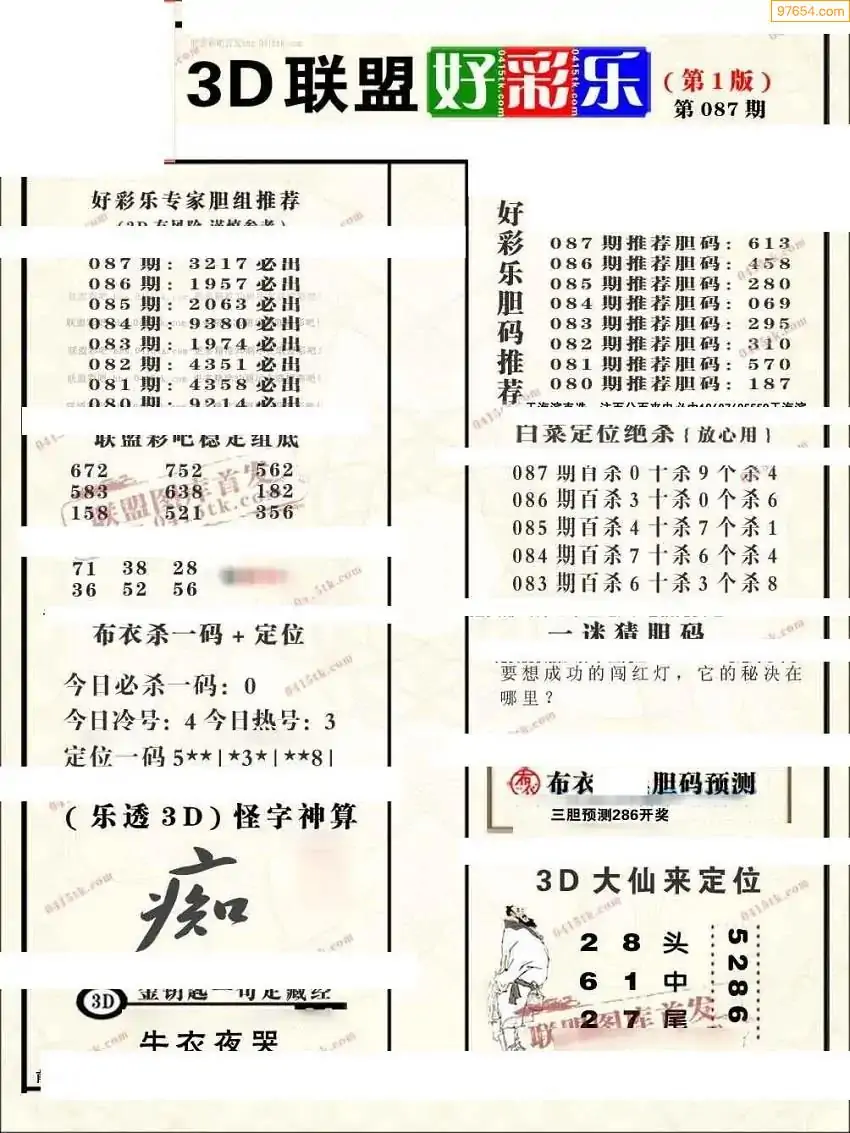 97654.com
3D联盟好彩乐
(第1版)
第087期
好彩乐专家胆组推荐
(3D有风险 谨慎参考)
087期：3217必出
086期：1957必出
085期：2063必出
084期：9380必出
083期：1974必出
082期：4351必出
081期：4358必出
080期：9214必出
联盟彩吧稳定组底
672 752 562
583 638 182
158 521 356
联盟图库首发
0415tk.com
71 38 28
36 52 56
布衣杀一码+定位
今日必杀一码：0
今日冷号：4 今日热号：3
定位一码 5**|*3*|**8|
(乐透3D)怪字神算
痴
3D 金钥匙一句定藏经
牛衣夜哭
好彩乐胆码推荐
087期推荐胆码：613
086期推荐胆码：458
085期推荐胆码：280
084期推荐胆码：069
083期推荐胆码：295
082期推荐胆码：310
081期推荐胆码：570
080期推荐胆码：187
白菜定位绝杀{放心用}
087期百杀0十杀9个杀4
086期百杀3十杀0个杀6
085期百杀4十杀7个杀1
084期百杀7十杀6个杀4
083期百杀6十杀3个杀8
一迷猜胆码
要想成功的闯红灯，它的秘决在
哪里？
布衣 胆码预测
三胆预测286开奖
3D大仙来定位
2 8 头
6 1 中
2 7 尾
5286
联盟图库首发